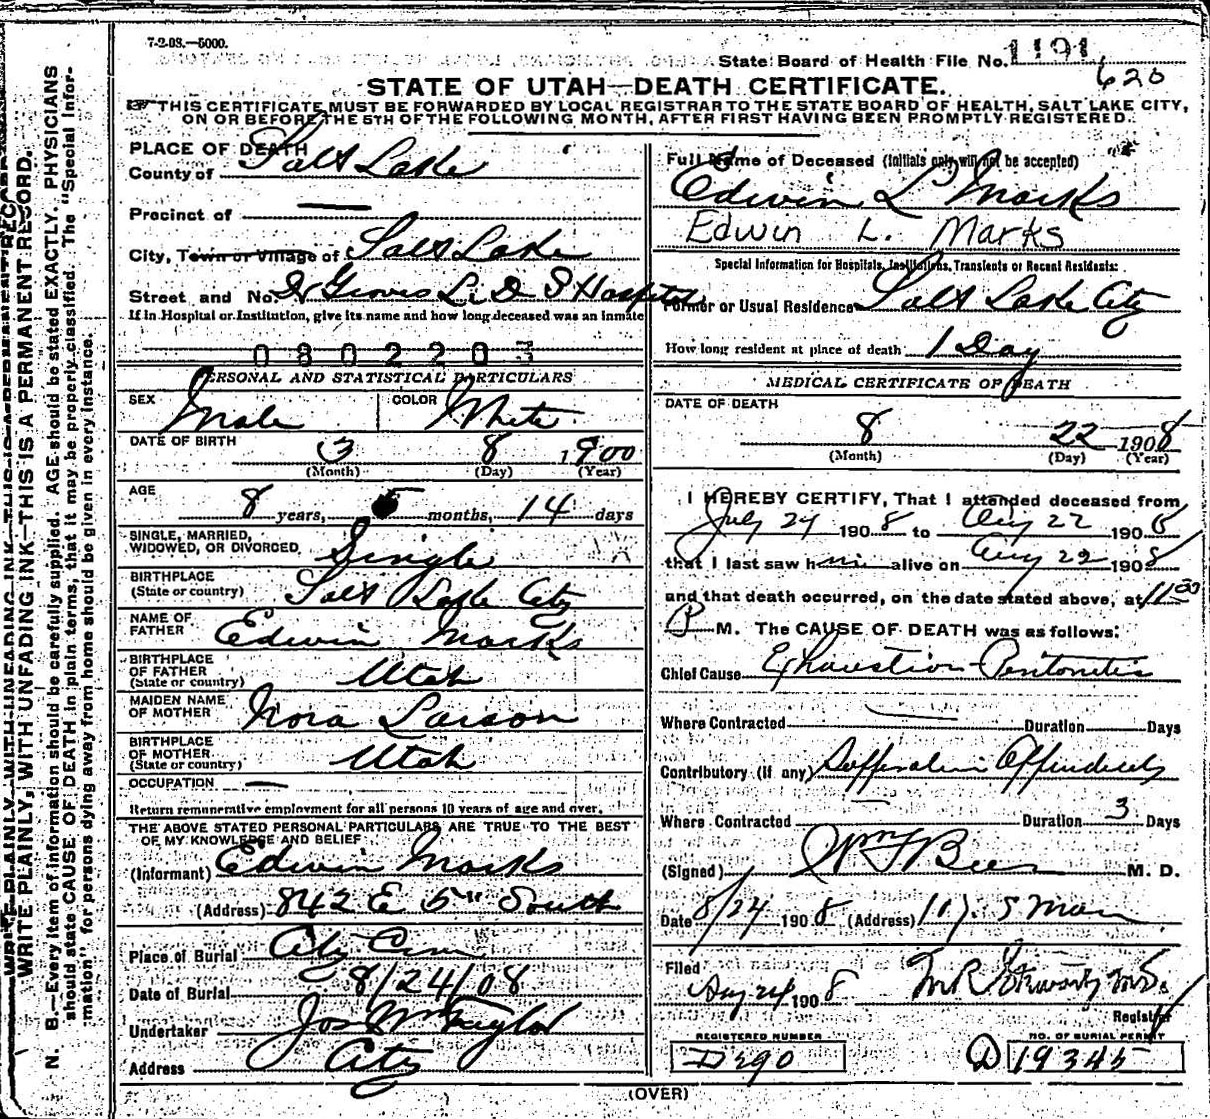 7-2-08.—5000.
State Board of Health File No. 1191
620
STATE OF UTAH—DEATH CERTIFICATE.
THIS CERTIFICATE MUST BE FORWARDED BY LOCAL REGISTRAR TO THE STATE BOARD OF HEALTH, SALT LAKE CITY,
ON OR BEFORE THE 5TH OF THE FOLLOWING MONTH, AFTER FIRST HAVING BEEN PROMPTLY REGISTERED.
WRITE PLAINLY, WITH UNFADING INK—THIS IS A PERMANENT RECORD.
N. B.—Every item of information should be carefully supplied. AGE should be stated EXACTLY. PHYSICIANS
should state CAUSE OF DEATH in plain terms, that it may be properly classified. The "Special Infor-
mation" for persons dying away from home should be given in every instance.
PLACE OF DEATH
County of Salt Lake
Precinct of —
City, Town or Village of Salt Lake
Street and No. Dr Groves L. D S Hospital
If in Hospital or Institution, give its name and how long deceased was an inmate
080220
PERSONAL AND STATISTICAL PARTICULARS
SEX Male
COLOR White
DATE OF BIRTH 3 8 1900
(Month) (Day) (Year)
AGE
8 years, 5 months, 14 days
SINGLE, MARRIED,
WIDOWED, OR DIVORCED Single
BIRTHPLACE
(State or country) Salt Lake City
NAME OF
FATHER Edwin Marks
BIRTHPLACE
OF FATHER
(State or country) Utah
MAIDEN NAME
OF MOTHER Nora Larson
BIRTHPLACE
OF MOTHER
(State or country) Utah
OCCUPATION —
Return remunerative employment for all persons 10 years of age and over.
THE ABOVE STATED PERSONAL PARTICULARS ARE TRUE TO THE BEST
OF MY KNOWLEDGE AND BELIEF
(Informant) Edwin Marks
(Address) 842 E 5" South
Place of Burial City Cem
Date of Burial 8/24/08
Undertaker Jos Wm Taylor
Address City
Full Name of Deceased (Initials only will not be accepted)
Edwin L Marks
Edwin L. Marks
Special Information for Hospitals, Institutions, Transients or Recent Residents:
Former or Usual Residence Salt Lake City
How long resident at place of death 1 Day
MEDICAL CERTIFICATE OF DEATH
DATE OF DEATH
8 22 1908
(Month) (Day) (Year)
I HEREBY CERTIFY, That I attended deceased from
July 24 1908 to Aug 22 1908
that I last saw him alive on Aug 22 1908
and that death occurred, on the date stated above, at 11 30
P M. The CAUSE OF DEATH was as follows:
Chief Cause Exhaustion - Peritonitis
Where Contracted — Duration Days
Contributory (if any) Suppurative Appendicitis
Where Contracted — Duration 3 Days
(Signed) Wm F Beer M. D.
Date 8/24 1908 (Address) 107. S Main
Filed
Aug 24 1908 M R Stewart M D.
Registrar
REGISTERED NUMBER
D 290
NO. OF BURIAL PERMIT
D 19345
(OVER)